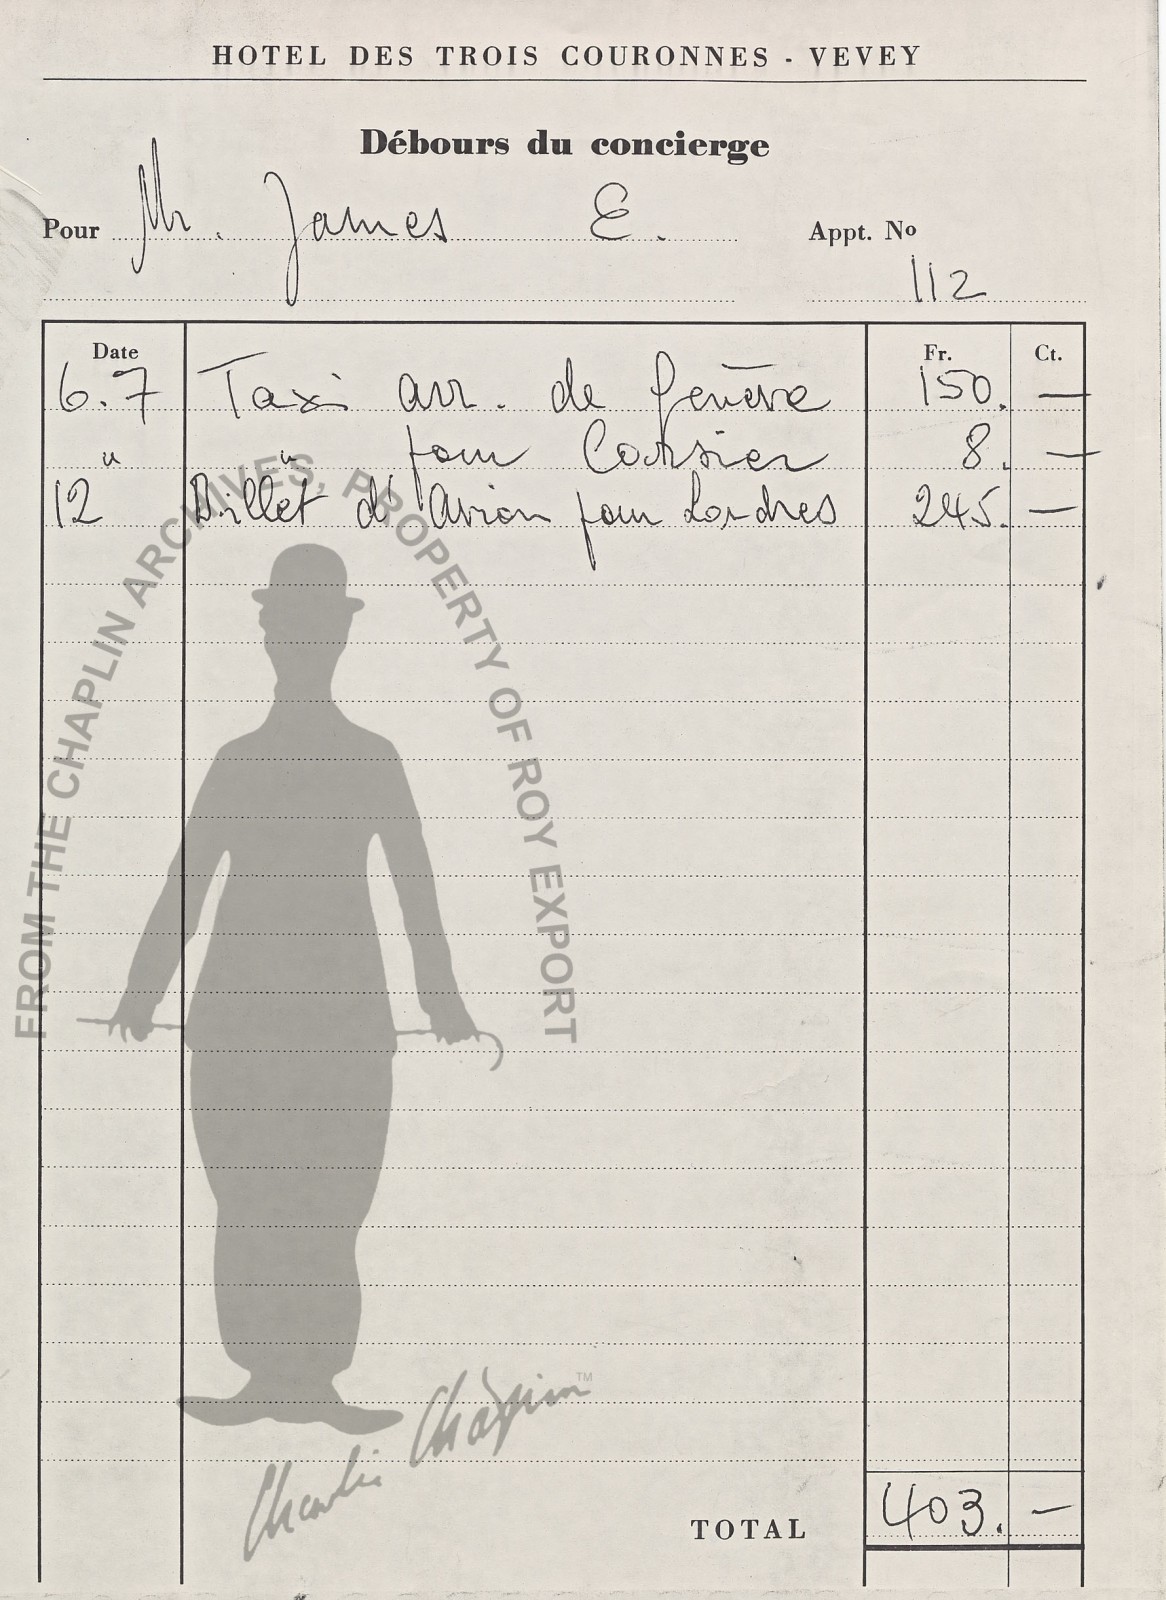 HOTEL DES TROIS COURONNES - VEVEY
Débours du concierge
Pour Mr. James E. Appt. No
112
Date Fr. Ct.
6.7 Taxi arr. de Genève 150. —
" " pour Corsier 8. —
12 Billet d'Avion pour Londres 245. —
FROM THE CHAPLIN ARCHIVES, PROPERTY OF ROY EXPORT
Charlie Chaplin™
TOTAL 403. —